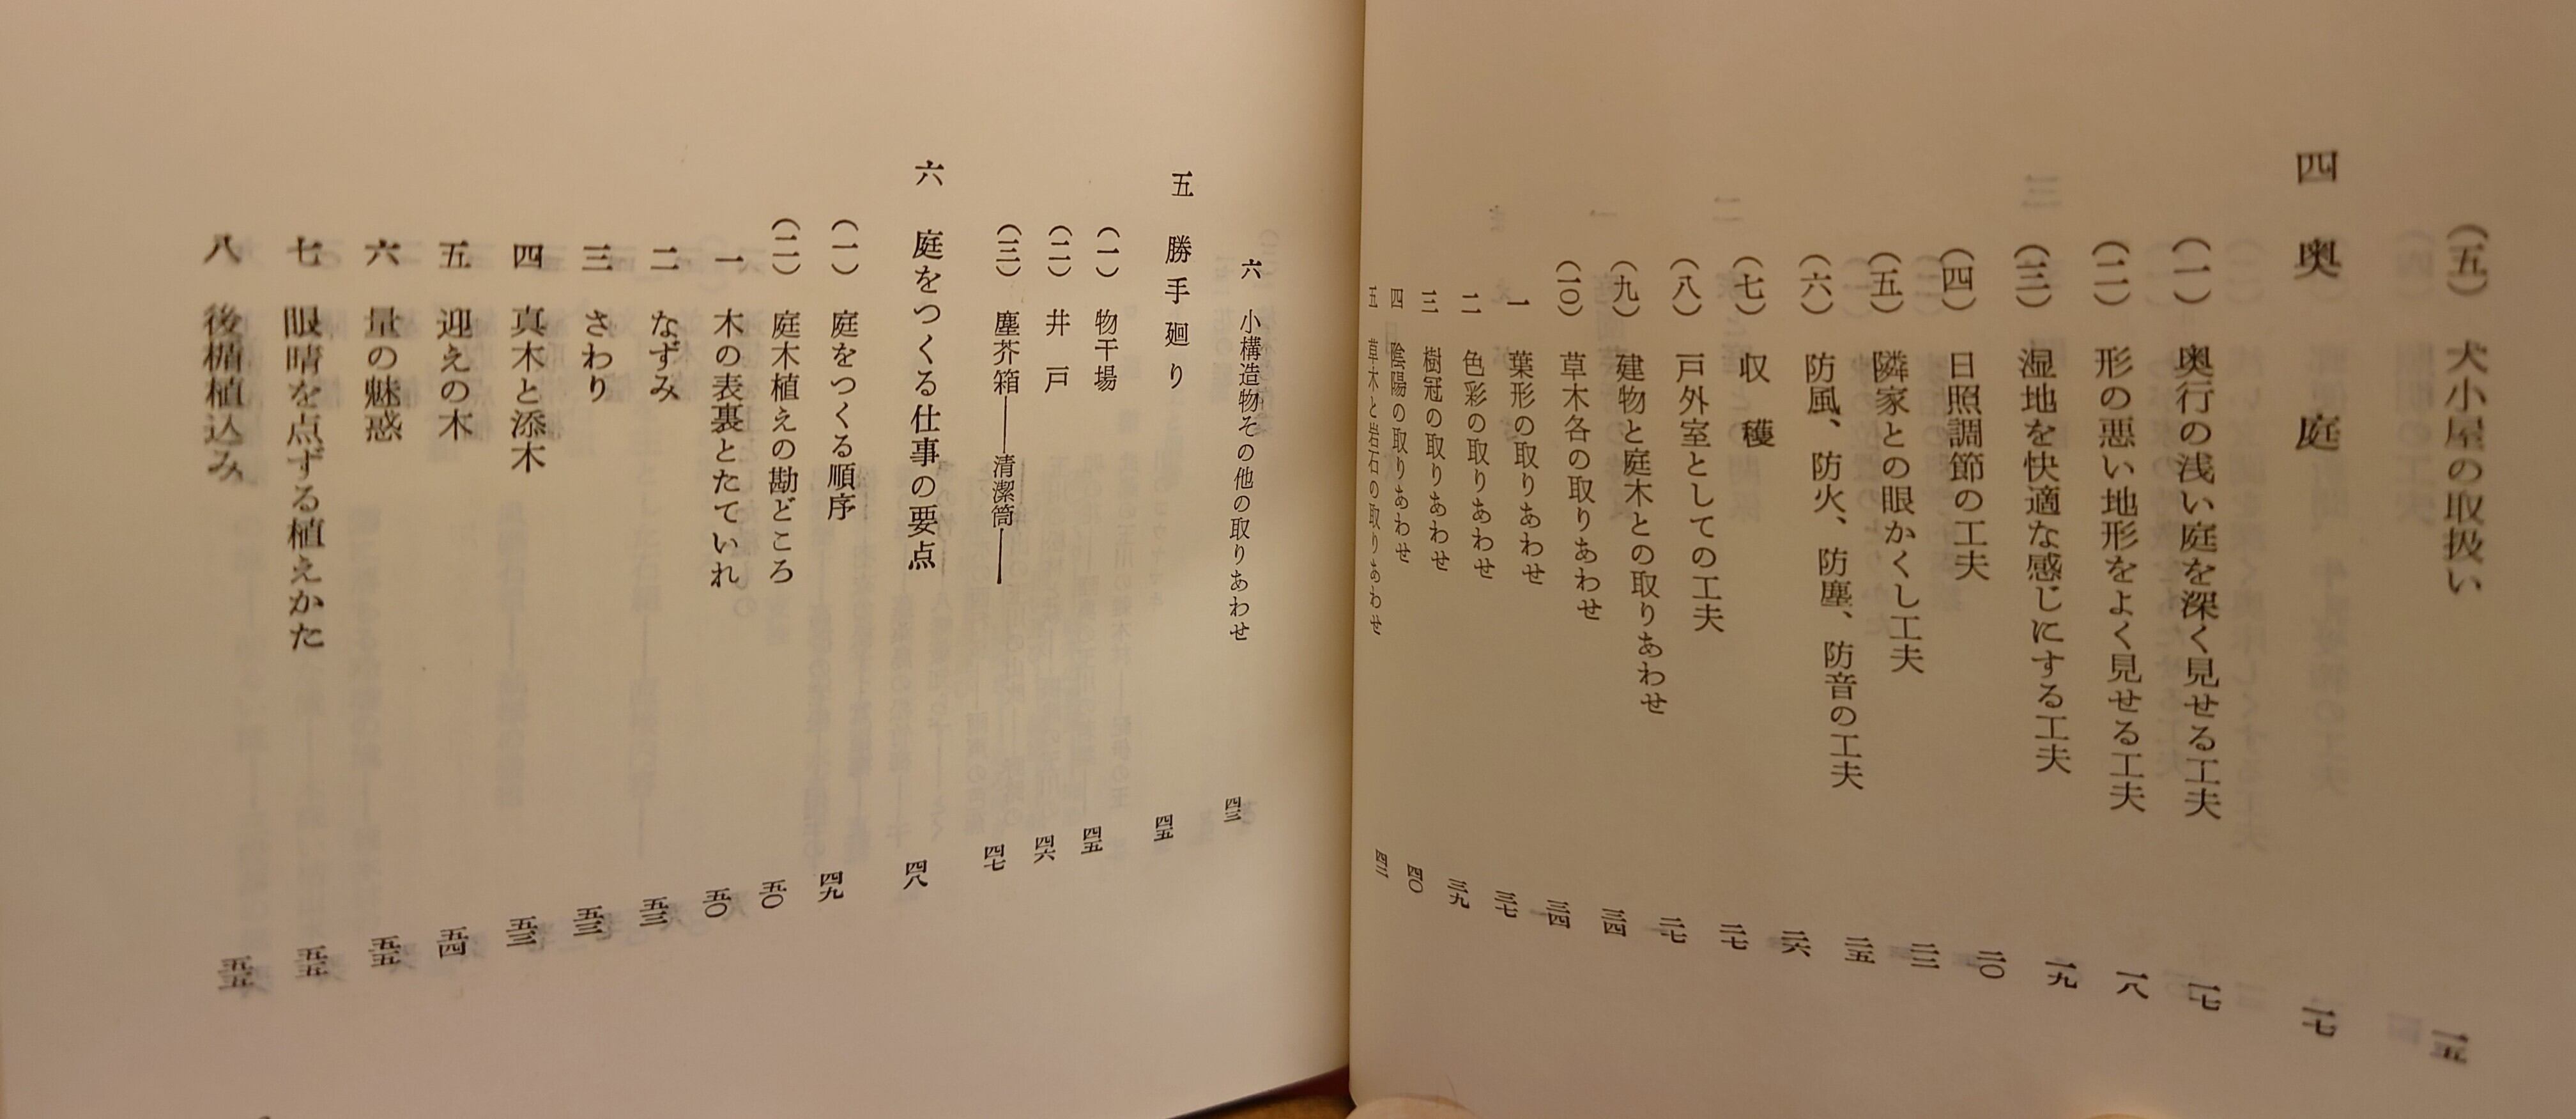 (五) 犬小屋の取扱い 一五
四 奥庭 一七
(一) 奥行の浅い庭を深く見せる工夫 一七
(二) 形の悪い地形をよく見せる工夫 一八
(三) 湿地を快適な感じにする工夫 一九
(四) 日照調節の工夫 二〇
(五) 隣家との眼かくし工夫 二二
(六) 防風、防火、防塵、防音の工夫 二五
(七) 収穫 二六
(八) 戸外室としての工夫 二七
(九) 建物と庭木との取りあわせ 二七
(一〇) 草木各の取りあわせ 三四
一 葉形の取りあわせ 三四
二 色彩の取りあわせ 三七
三 樹冠の取りあわせ 三九
四 陰陽の取りあわせ 四〇
五 草木と岩石の取りあわせ 四二
六 小構造物その他の取りあわせ 四三
五 勝手廻り 四五
(一) 物干場 四五
(二) 井戸 四六
(三) 塵芥箱――清潔筒―― 四七
六 庭をつくる仕事の要点 四八
(一) 庭をつくる順序 四九
(二) 庭木植えの勘どころ 五〇
一 木の表裏とたていれ 五〇
二 なずみ 五三
三 さわり 五三
四 真木と添木 五三
五 迎えの木 五四
六 量の魅惑 五五
七 眼晴を点ずる植えかた 五五
八 後楯植込み 五五